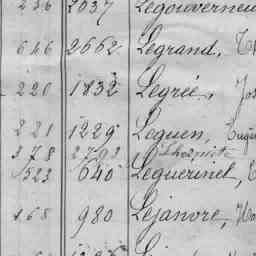 236 2037 Legouverneu
646 2662 Legrand,
220 1832 Legrée, Jos
221 1229 Leguen, Eugè
378 2793 Lhospite
523 640 Leguerinel, E
168 980 Lejanvre, Ma